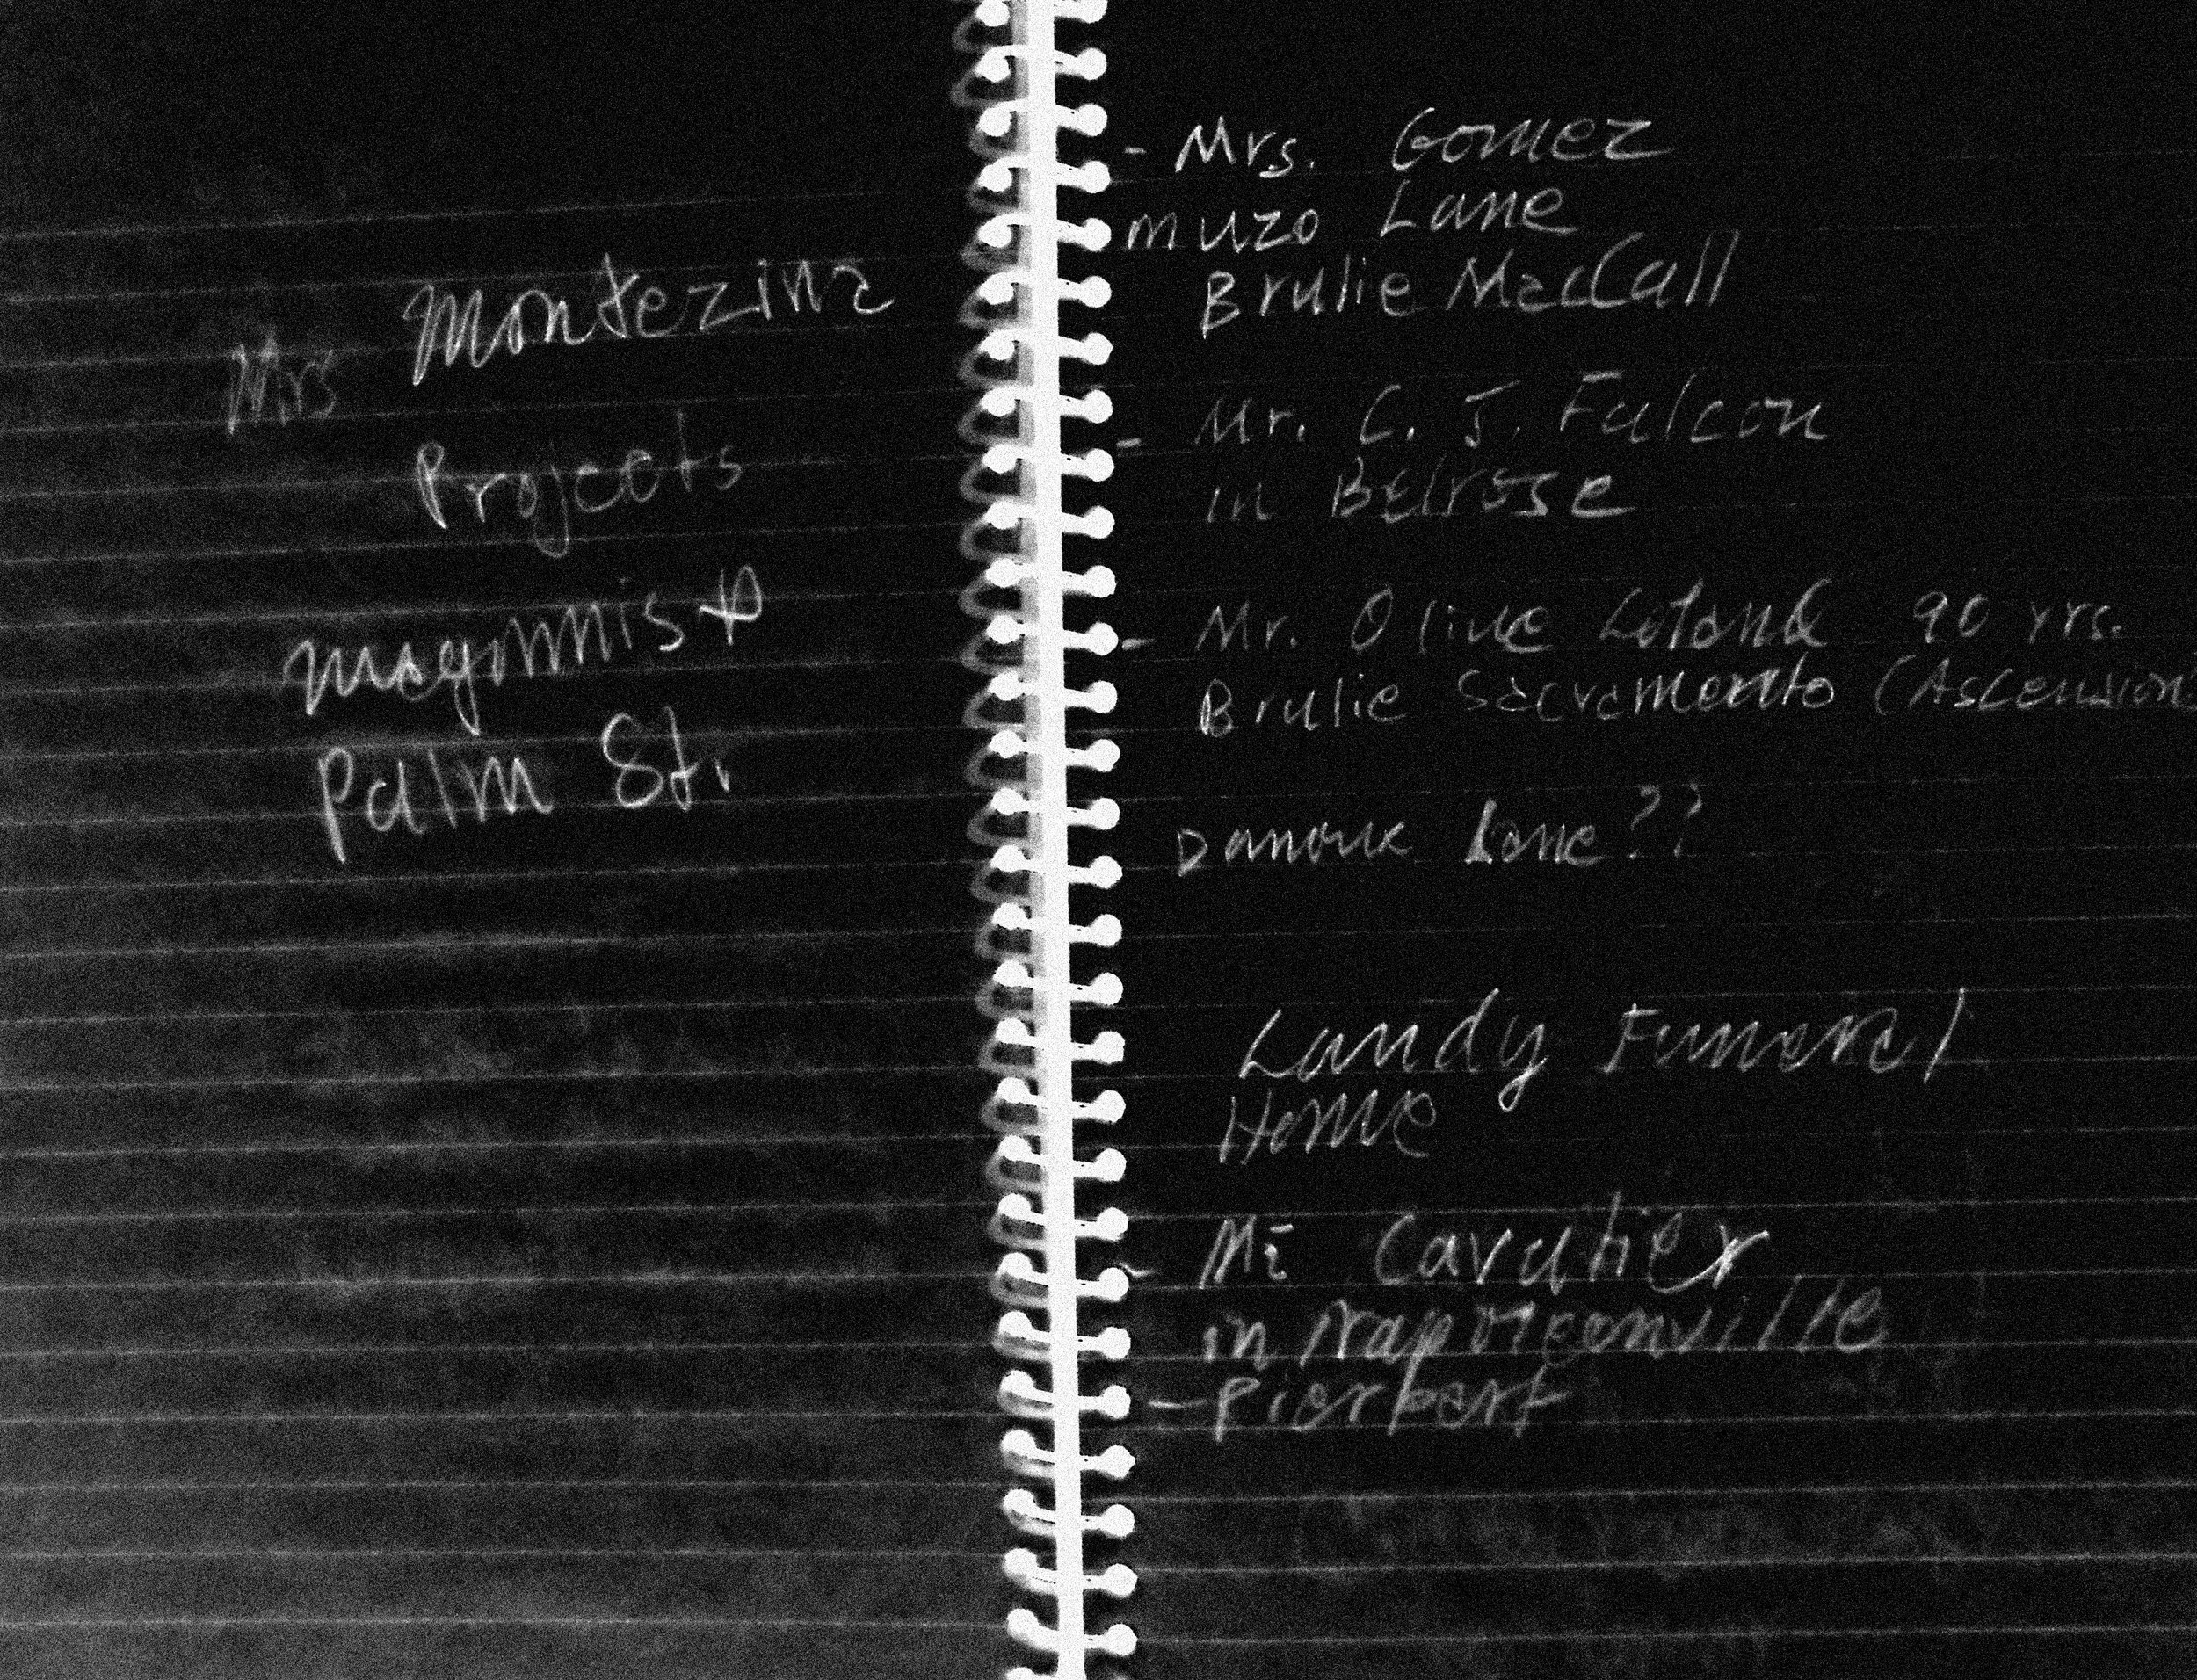 Mrs Montezina
Projects
Magginnis &
Palm St.
- Mrs. Gomez
muzo Lane
Brulie MacCall
- Mr. C. J. Falcon
in Belrose
- Mr. Olive 90 yrs.
Brulie Sacramento (Ascension
Lane ??
Landy Funeral
Home
- Mr Cavalier
in Napoleonville
- Pierpart